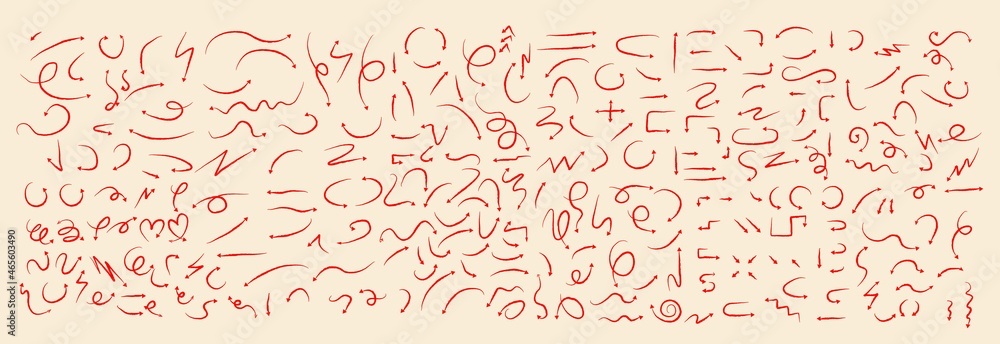 Adobe Stock | #465603490